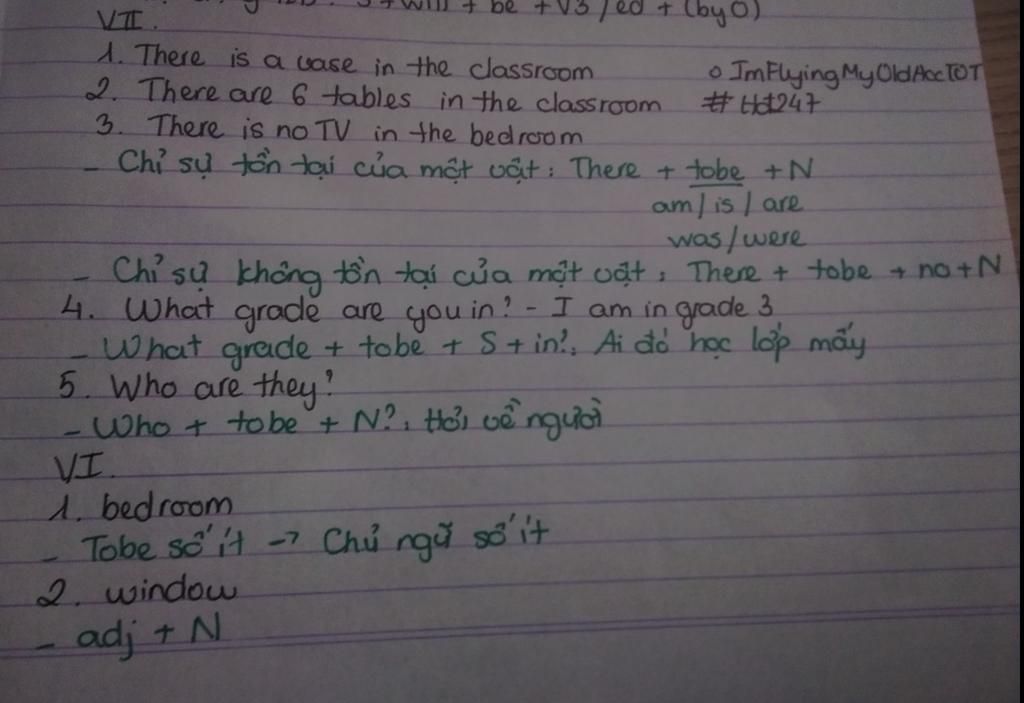 S + will + be + V3/ed + (by O)
VII.
1. There is a vase in the classroom o ImFlyingMyOldAccTOT
2. There are 6 tables in the classroom # Hd247
3. There is no TV in the bedroom
- Chỉ sự tồn tại của một vật: There + tobe + N
am / is / are
was / were
- Chỉ sự không tồn tại của một vật: There + tobe + no + N
4. What grade are you in? - I am in grade 3
- What grade + tobe + S + in?: Ai đó học lớp mấy
5. Who are they?
- Who + tobe + N?: Hỏi về người
VI.
1. bedroom
- Tobe số ít -> Chủ ngữ số ít
2. window
- adj + N